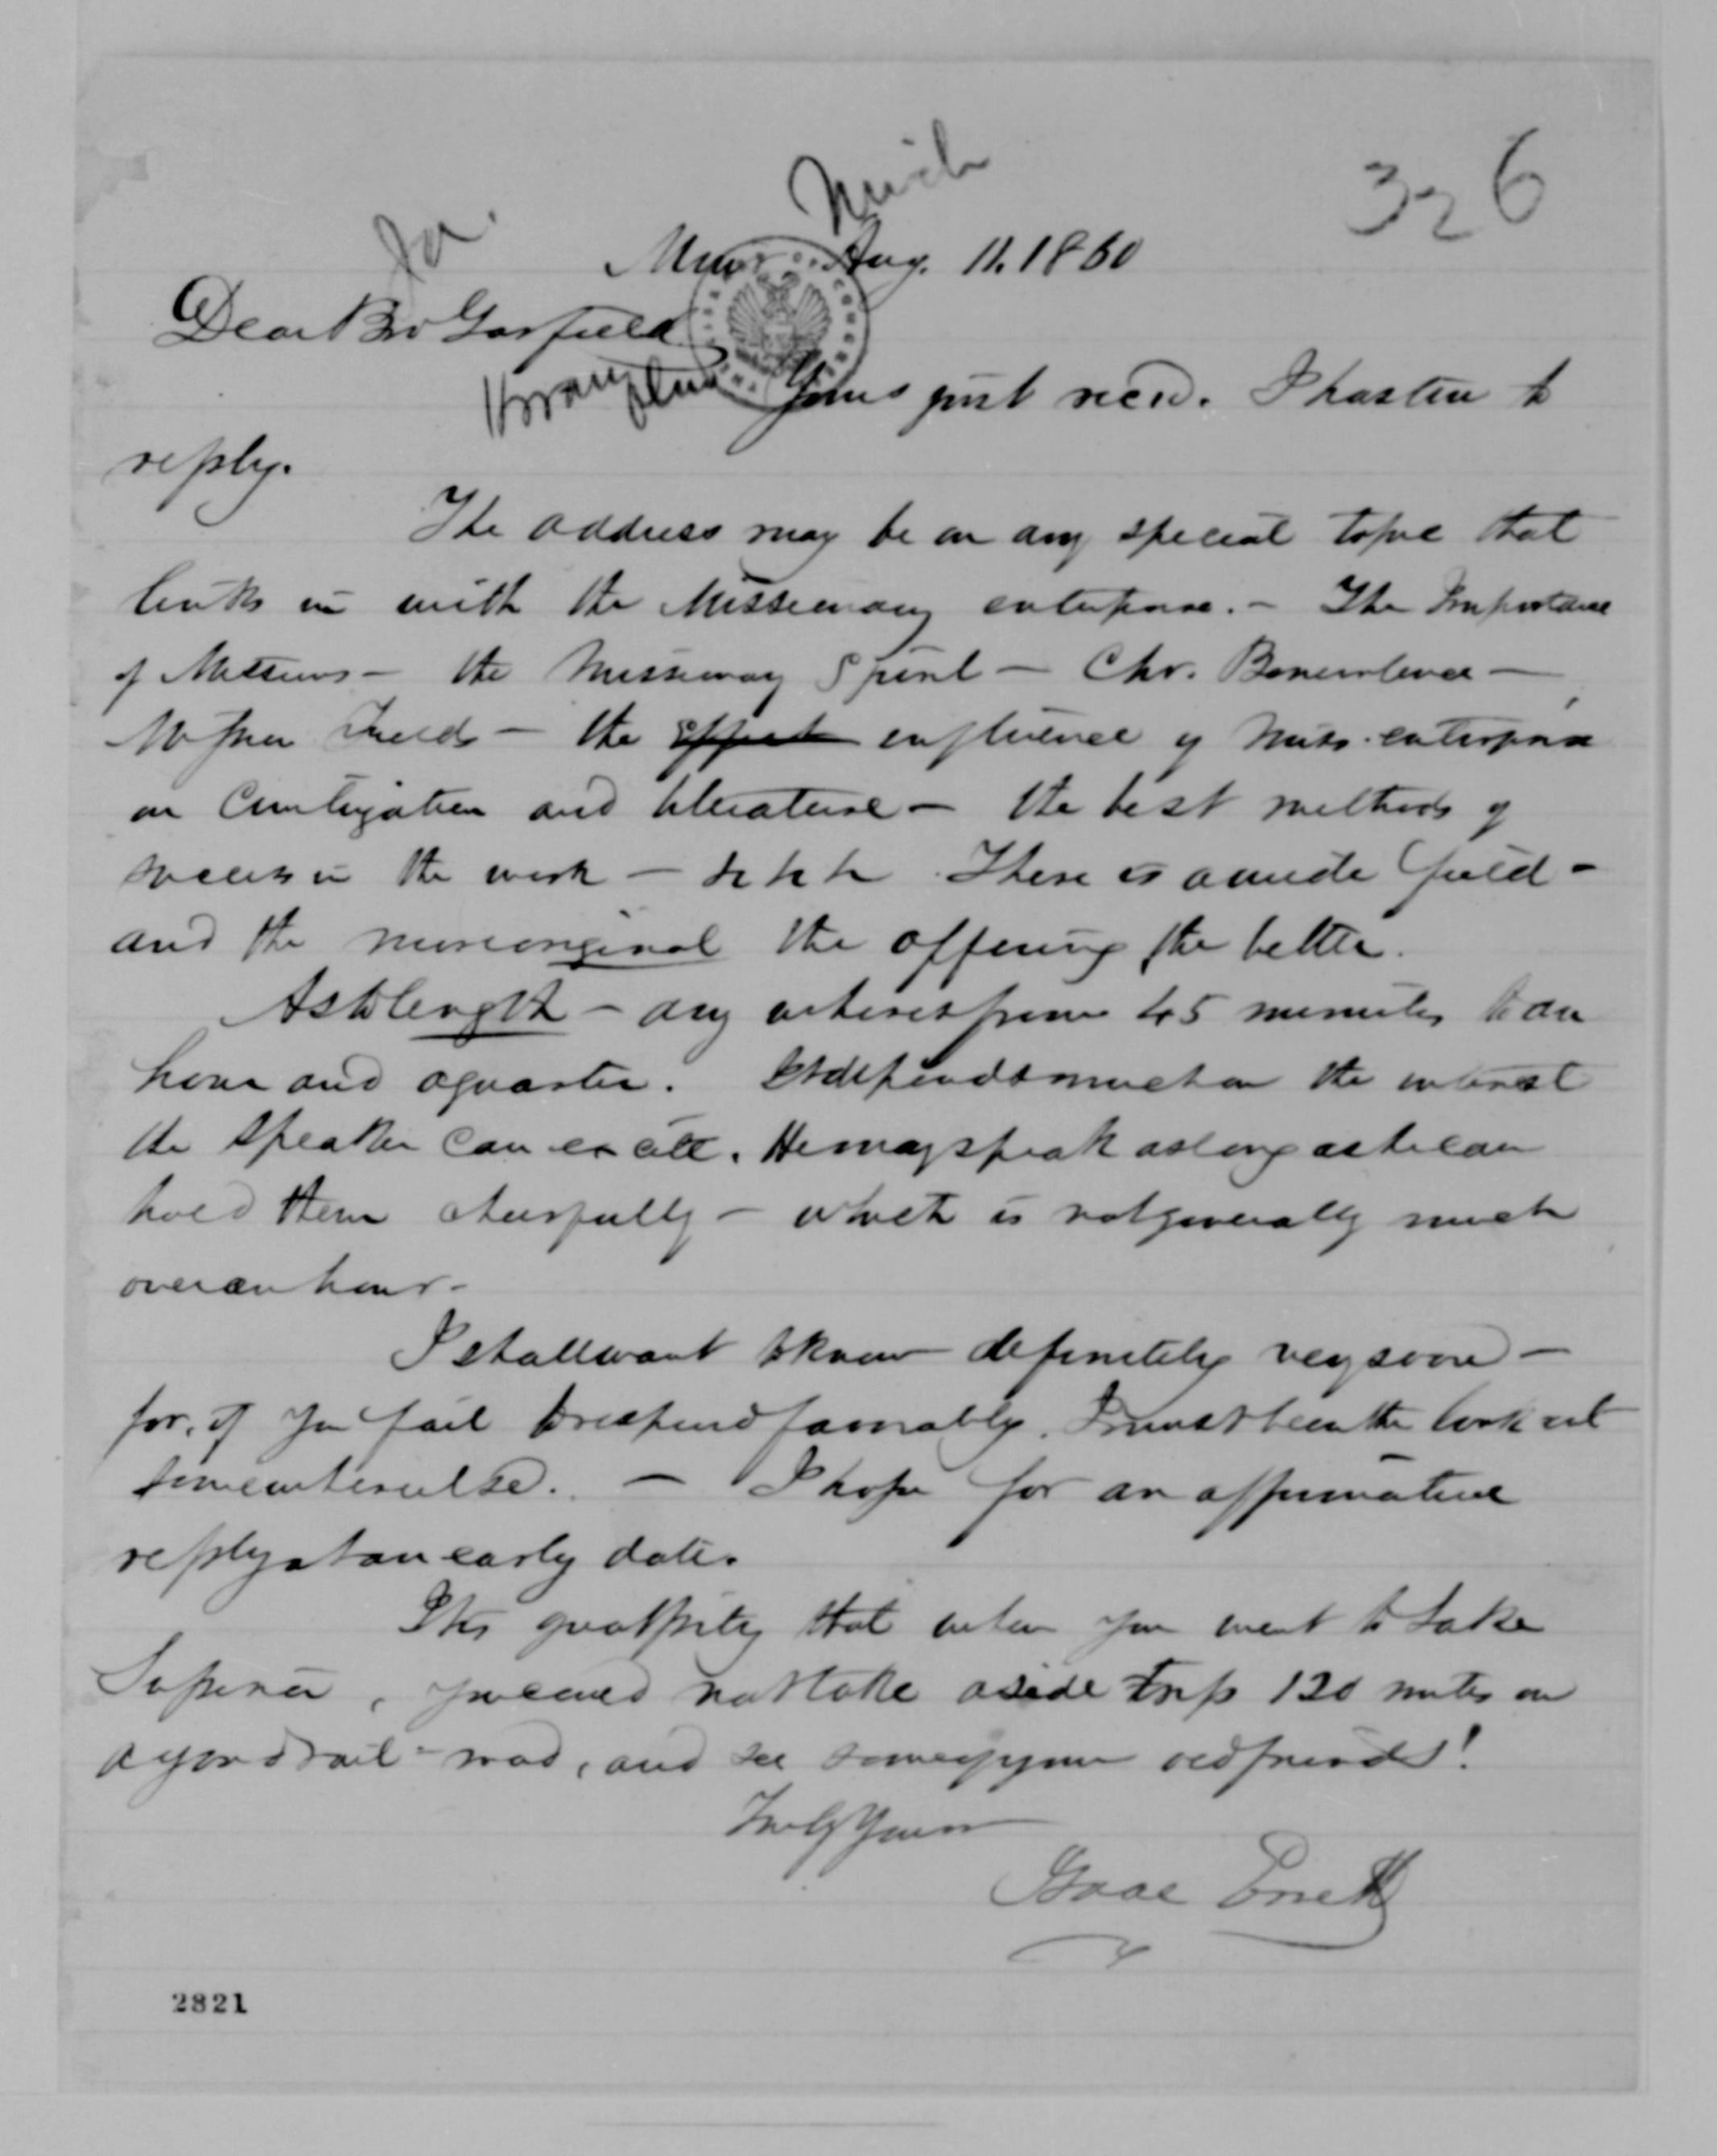 326
Mich
Muir Aug. 11. 1860
Ja.
Dear Bro Garfield
Yours just recd. I hasten to
reply.
The address may be on any special topic that
links in with the Missionary enterprise. - The Importance
of Missions - the Missionary Spirit - Chr. Benevolence -
Mission Fields - the effect influence of Miss. enterprise
on Civilization and literature - the best methods of
success in the work - &c &c &c There is a wide field -
and the more original the offering the better.
As to length - any where from 45 minutes to an
hour and a quarter. It depends much on the interest
the speaker can excite. He may speak as long as he can
hold them cheerfully - which is not generally much
over an hour -
I shall want to know definitely very soon -
for, if you fail to respond favorably, I must be on the look out
somewhere else. - I hope for an affirmative
reply at an early date.
It is a great pity that when you went to Lake
Superior, you could not take a side trip 120 miles on
a good rail-road, and see some of your old friends!
Truly Yours
Isaac Errett
2821